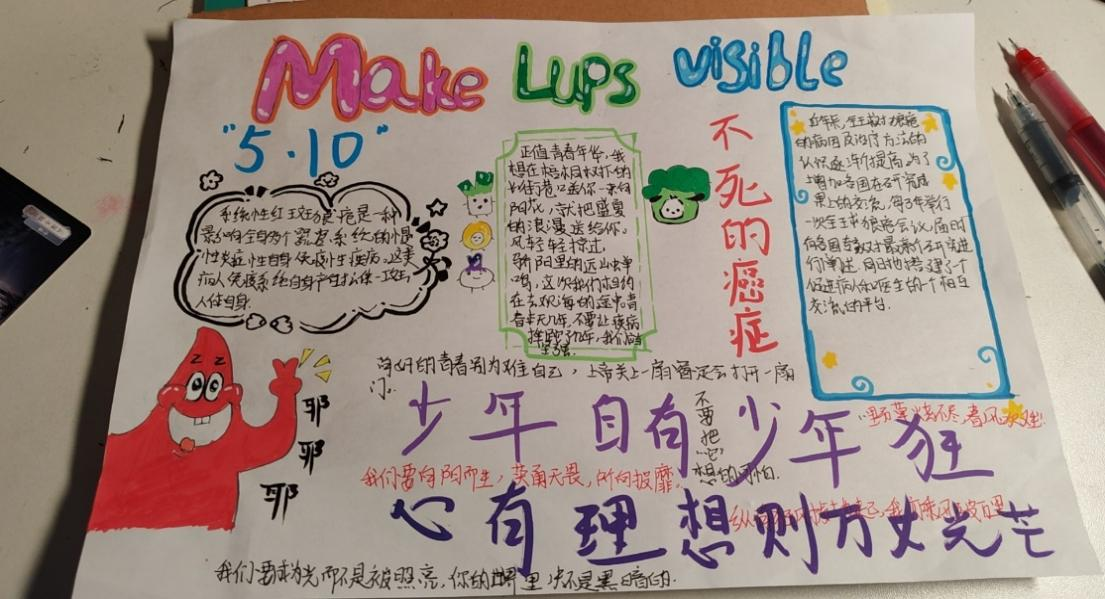 Make Lups visible
"5.10"
系统性红斑狼疮是一种
影响全身多个器官系统的慢
性炎症性自身免疫性疾病。这类
病人免疫系统自身产生抗体
人体自身.
正值青春年华,我
想在梧桐树下的
长街巷口送你一束向
阳花,
的浪漫送给你。
风轻轻掠过
骄阳里的远山蝉
鸣,这次我们相约
在去观海的途中,青
春年几,不要让疾病
我们
坚强.
不死的癌症
近年来,全球对狼疮
的病因及治疗方法的
认识逐渐提高,为了
增加各国在研究
的交流,每3年举行
一次全球狼疮会议,届时
各国专家对最新的研究进
行阐述,同时也搭建了一个
促进病人和医生的一个相互
交流的平台.
美好的青春别为难自己,上帝关上一扇窗定会打开一扇
门.
耶
耶
耶
少年自有少年狂
不要把"它"
想的可怕.
野草烧不尽,春风吹又生!
我们要向阳而生,英勇无畏,所向披靡。
心有理想则万丈光芒
我们要成为光而不是被照亮,你的世界里决不是黑暗的.